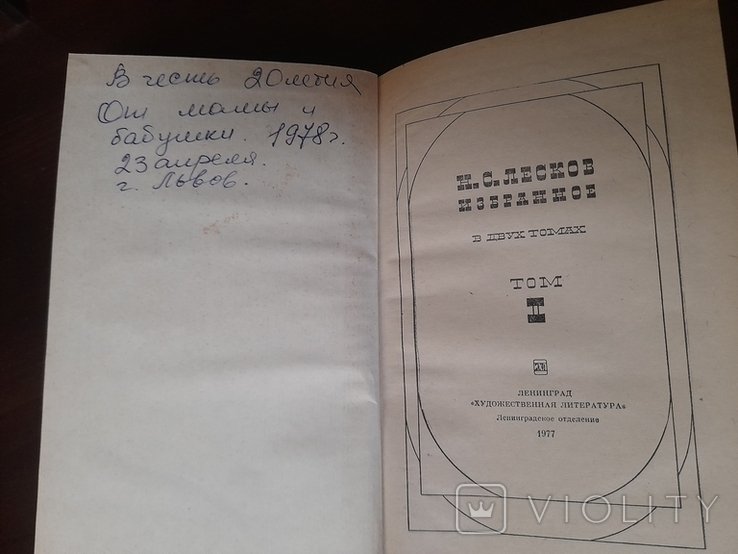 В честь 20 летия
От мамы и
бабушки. 1978 г.
23 апреля.
г. Львов.
Н. С. ЛЕСКОВ
ИЗБРАННОЕ
В ДВУХ ТОМАХ
ТОМ
II
ЛЕНИНГРАД
«ХУДОЖЕСТВЕННАЯ ЛИТЕРАТУРА»
Ленинградское отделение
1977
VIOLITY